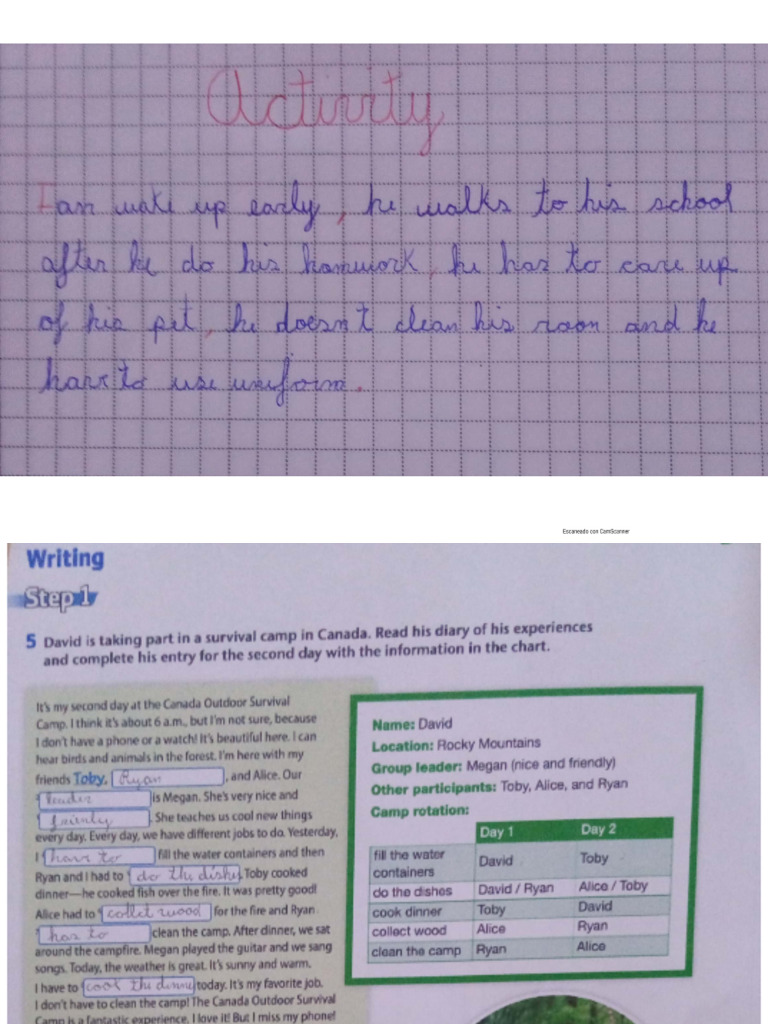 Activity
Ian wake up early, he walks to his school
after he do his homwork, he has to care up
of his pet, he doesn't clean his room and he
have to use uniform.
Escaneado con CamScanner
Writing
Step 1
5 David is taking part in a survival camp in Canada. Read his diary of his experiences
and complete his entry for the second day with the information in the chart.
It's my second day at the Canada Outdoor Survival
Camp. I think it's about 6 a.m., but I'm not sure, because
I don't have a phone or a watch! It's beautiful here. I can
hear birds and animals in the forest. I'm here with my
friends Toby, Ryan, and Alice. Our
leader is Megan. She's very nice and
. She teaches us cool new things
every day. Every day, we have different jobs to do. Yesterday,
I have to fill the water containers and then
Ryan and I had to do the dishes. Toby cooked
dinner—he cooked fish over the fire. It was pretty good!
Alice had to collet wood for the fire and Ryan
has to clean the camp. After dinner, we sat
around the campfire. Megan played the guitar and we sang
songs. Today, the weather is great. It's sunny and warm.
I have to cook the dinne today. It's my favorite job.
I don't have to clean the camp! The Canada Outdoor Survival
Camp is a fantastic experience. I love it! But I miss my phone!
Name: David
Location: Rocky Mountains
Group leader: Megan (nice and friendly)
Other participants: Toby, Alice, and Ryan
Camp rotation:
Day 1 Day 2
fill the water containers David Toby
do the dishes David / Ryan Alice / Toby
cook dinner Toby David
collect wood Alice Ryan
clean the camp Ryan Alice